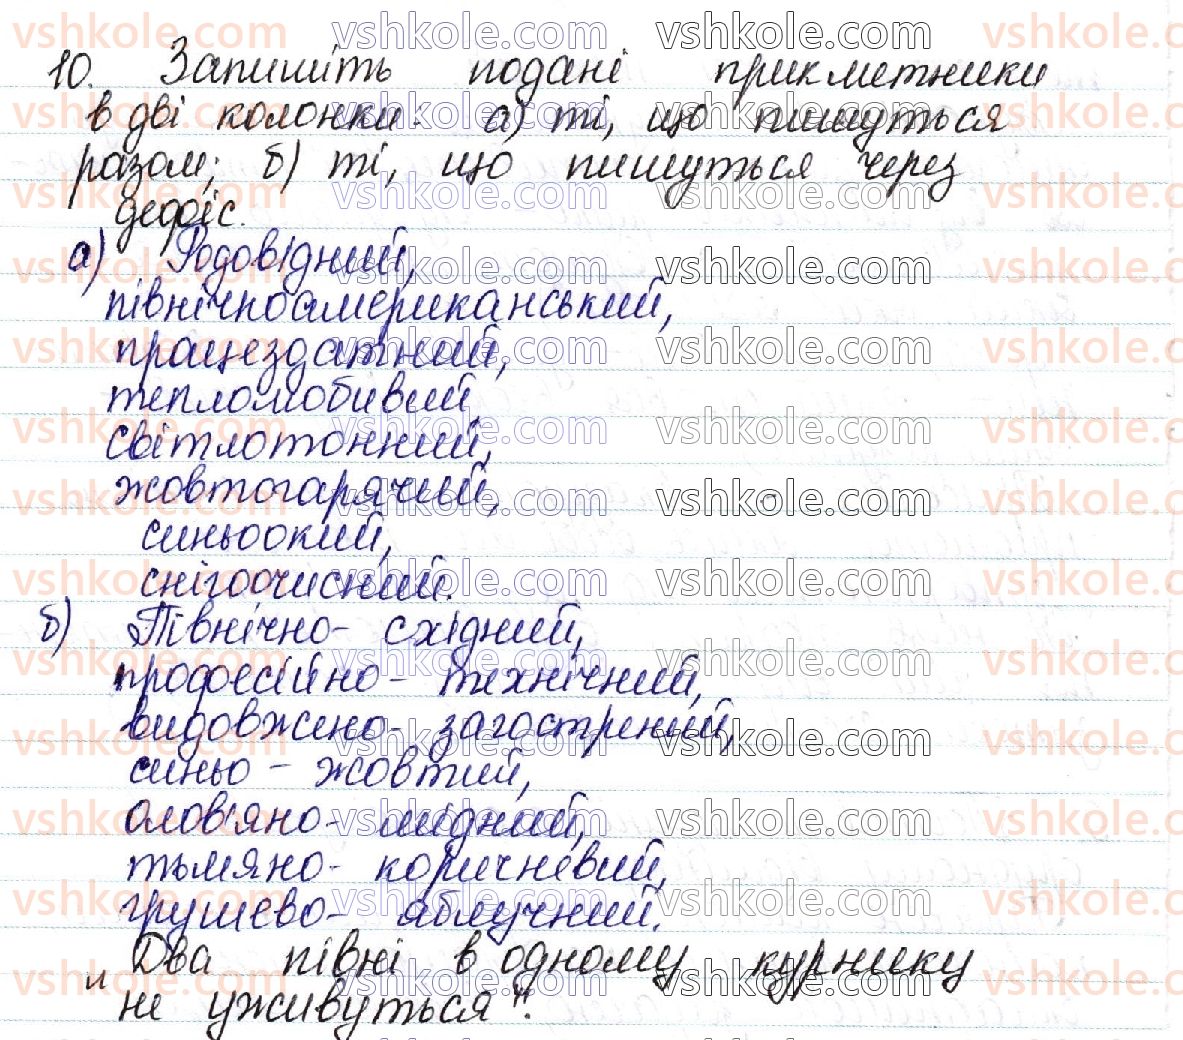 10. Запишіть подані прикметники
в дві колонки: а) ті, що пишуться
разом; б) ті, що пишуться через
дефіс.
а) Родовідний,
північноамериканський,
працездатний,
теплолюбивий,
світлотонний,
жовтогарячий,
синьоокий,
снігоочисний.
б) Північно- східний,
професійно - технічний,
видовжено- загострений,
синьо - жовтий,
олов'яно- мідний,
тьмяно- коричневий,
грушево- яблучний.
„Два півні в одному курнику
не уживуться".